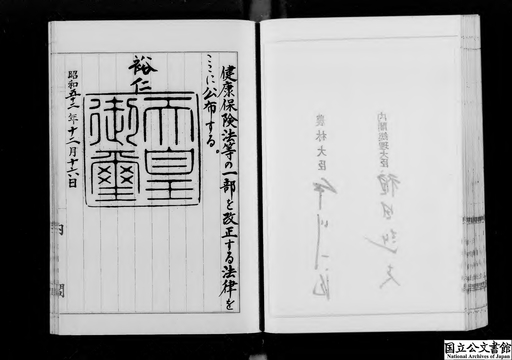 内閣総理大臣 福田赳夫
農林大臣
健康保険法等の一部を改正する法律を
ここに公布する。
裕仁
天皇
御璽
昭和五十二年十二月十六日
国立公文書館
National Archives of Japan